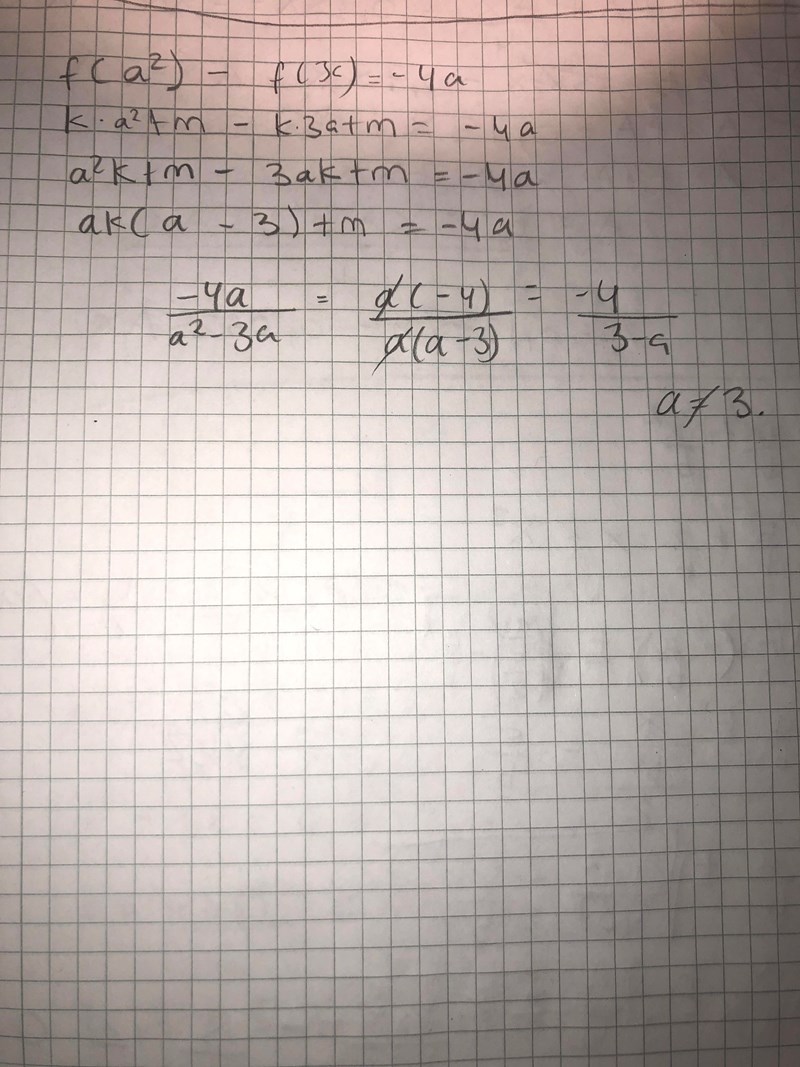 f(a²) - f(3a) = -4a
k·a²+m - k·3a+m = -4a
a²k+m - 3ak+m = -4a
ak(a - 3)+m = -4a
-4a/(a²-3a) = a(-4)/a(a-3) = -4/(3-a)
a≠3.